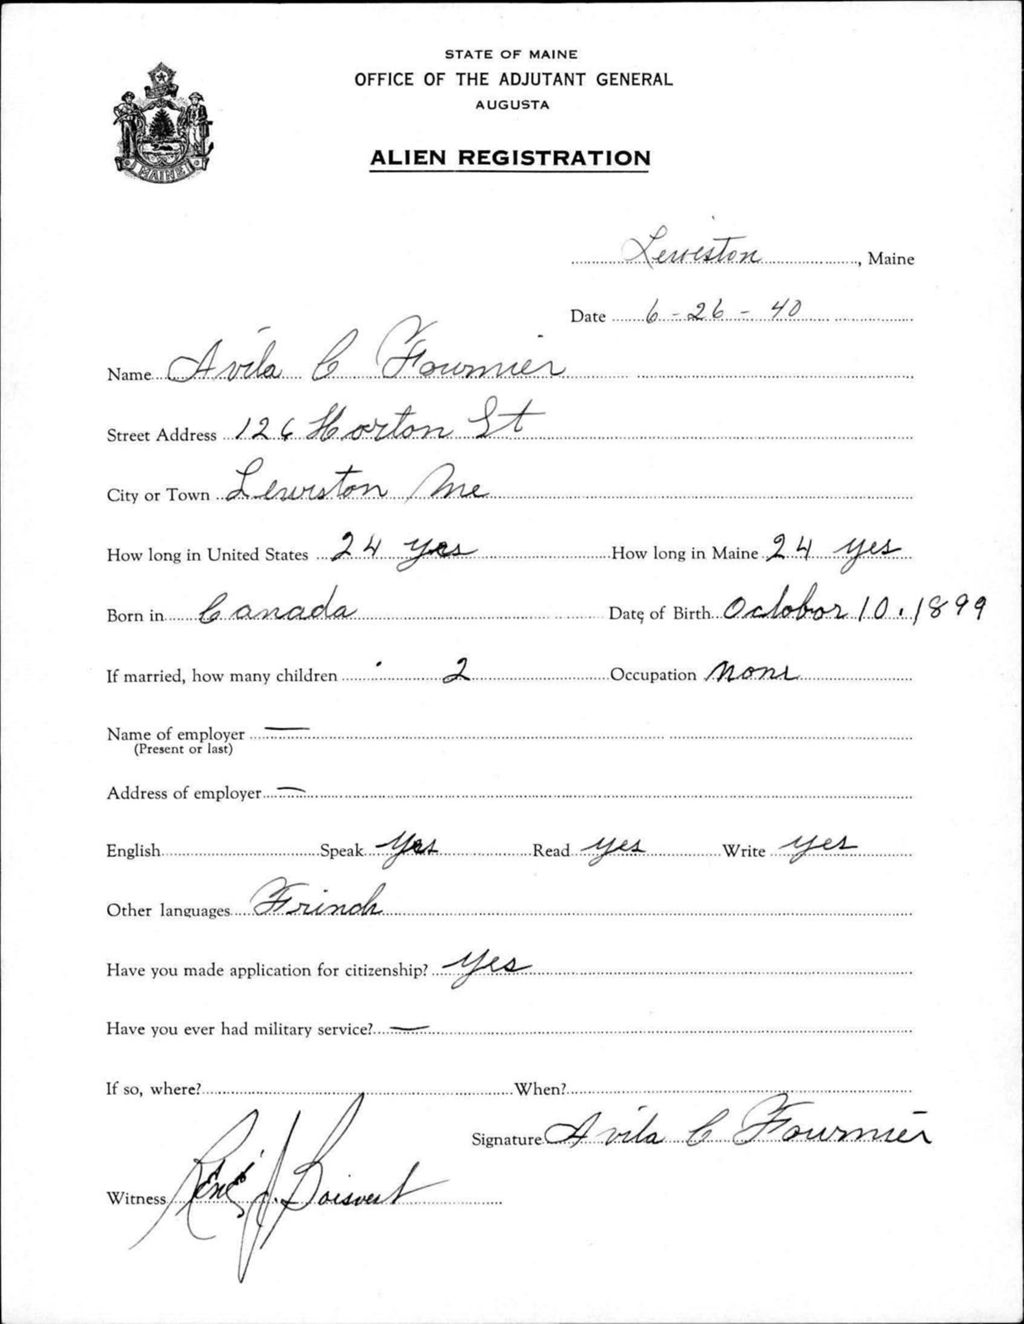 STATE OF MAINE
OFFICE OF THE ADJUTANT GENERAL
AUGUSTA
ALIEN REGISTRATION
MAINE
Lewiston, Maine
Date 6-26-40
Name Avila C Fournier
Street Address 126 Horton St
City or Town Lewiston Me
How long in United States 24 yes How long in Maine 24 yes
Born in Canada Date of Birth Octobor 10. 1899
If married, how many children 2 Occupation None
Name of employer —
(Present or last)
Address of employer —
English Speak Yes Read yes Write yes
Other languages Frinch
Have you made application for citizenship? Yes
Have you ever had military service? —
If so, where? When?
Signature Avila C Fournier
Witness René J. Boisvert